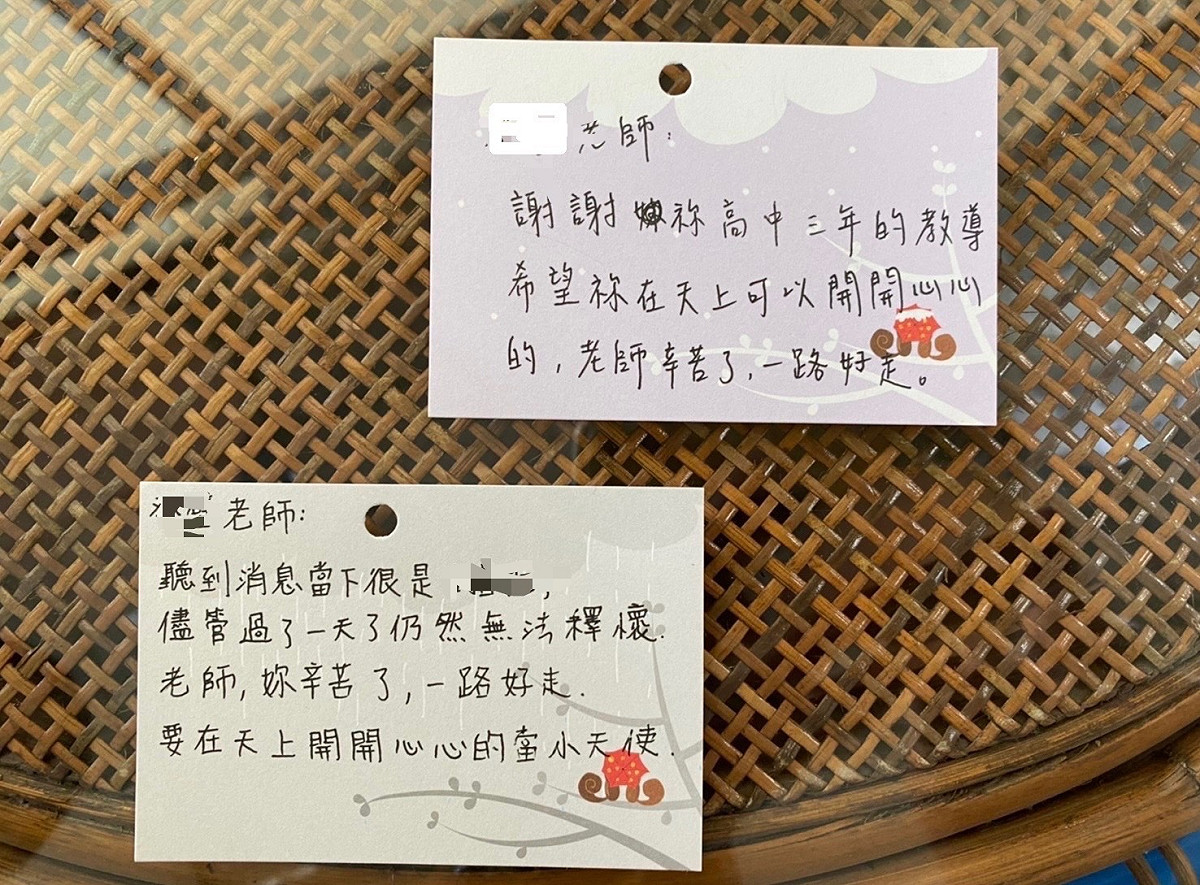 老師:
謝謝祢高中三年的教導
希望祢在天上可以開開心心
的,老師辛苦了,一路好走。
老師:
聽到消息當下很是
儘管過了一天了仍然無法釋懷.
老師,妳辛苦了,一路好走.
要在天上開開心心的當小天使.